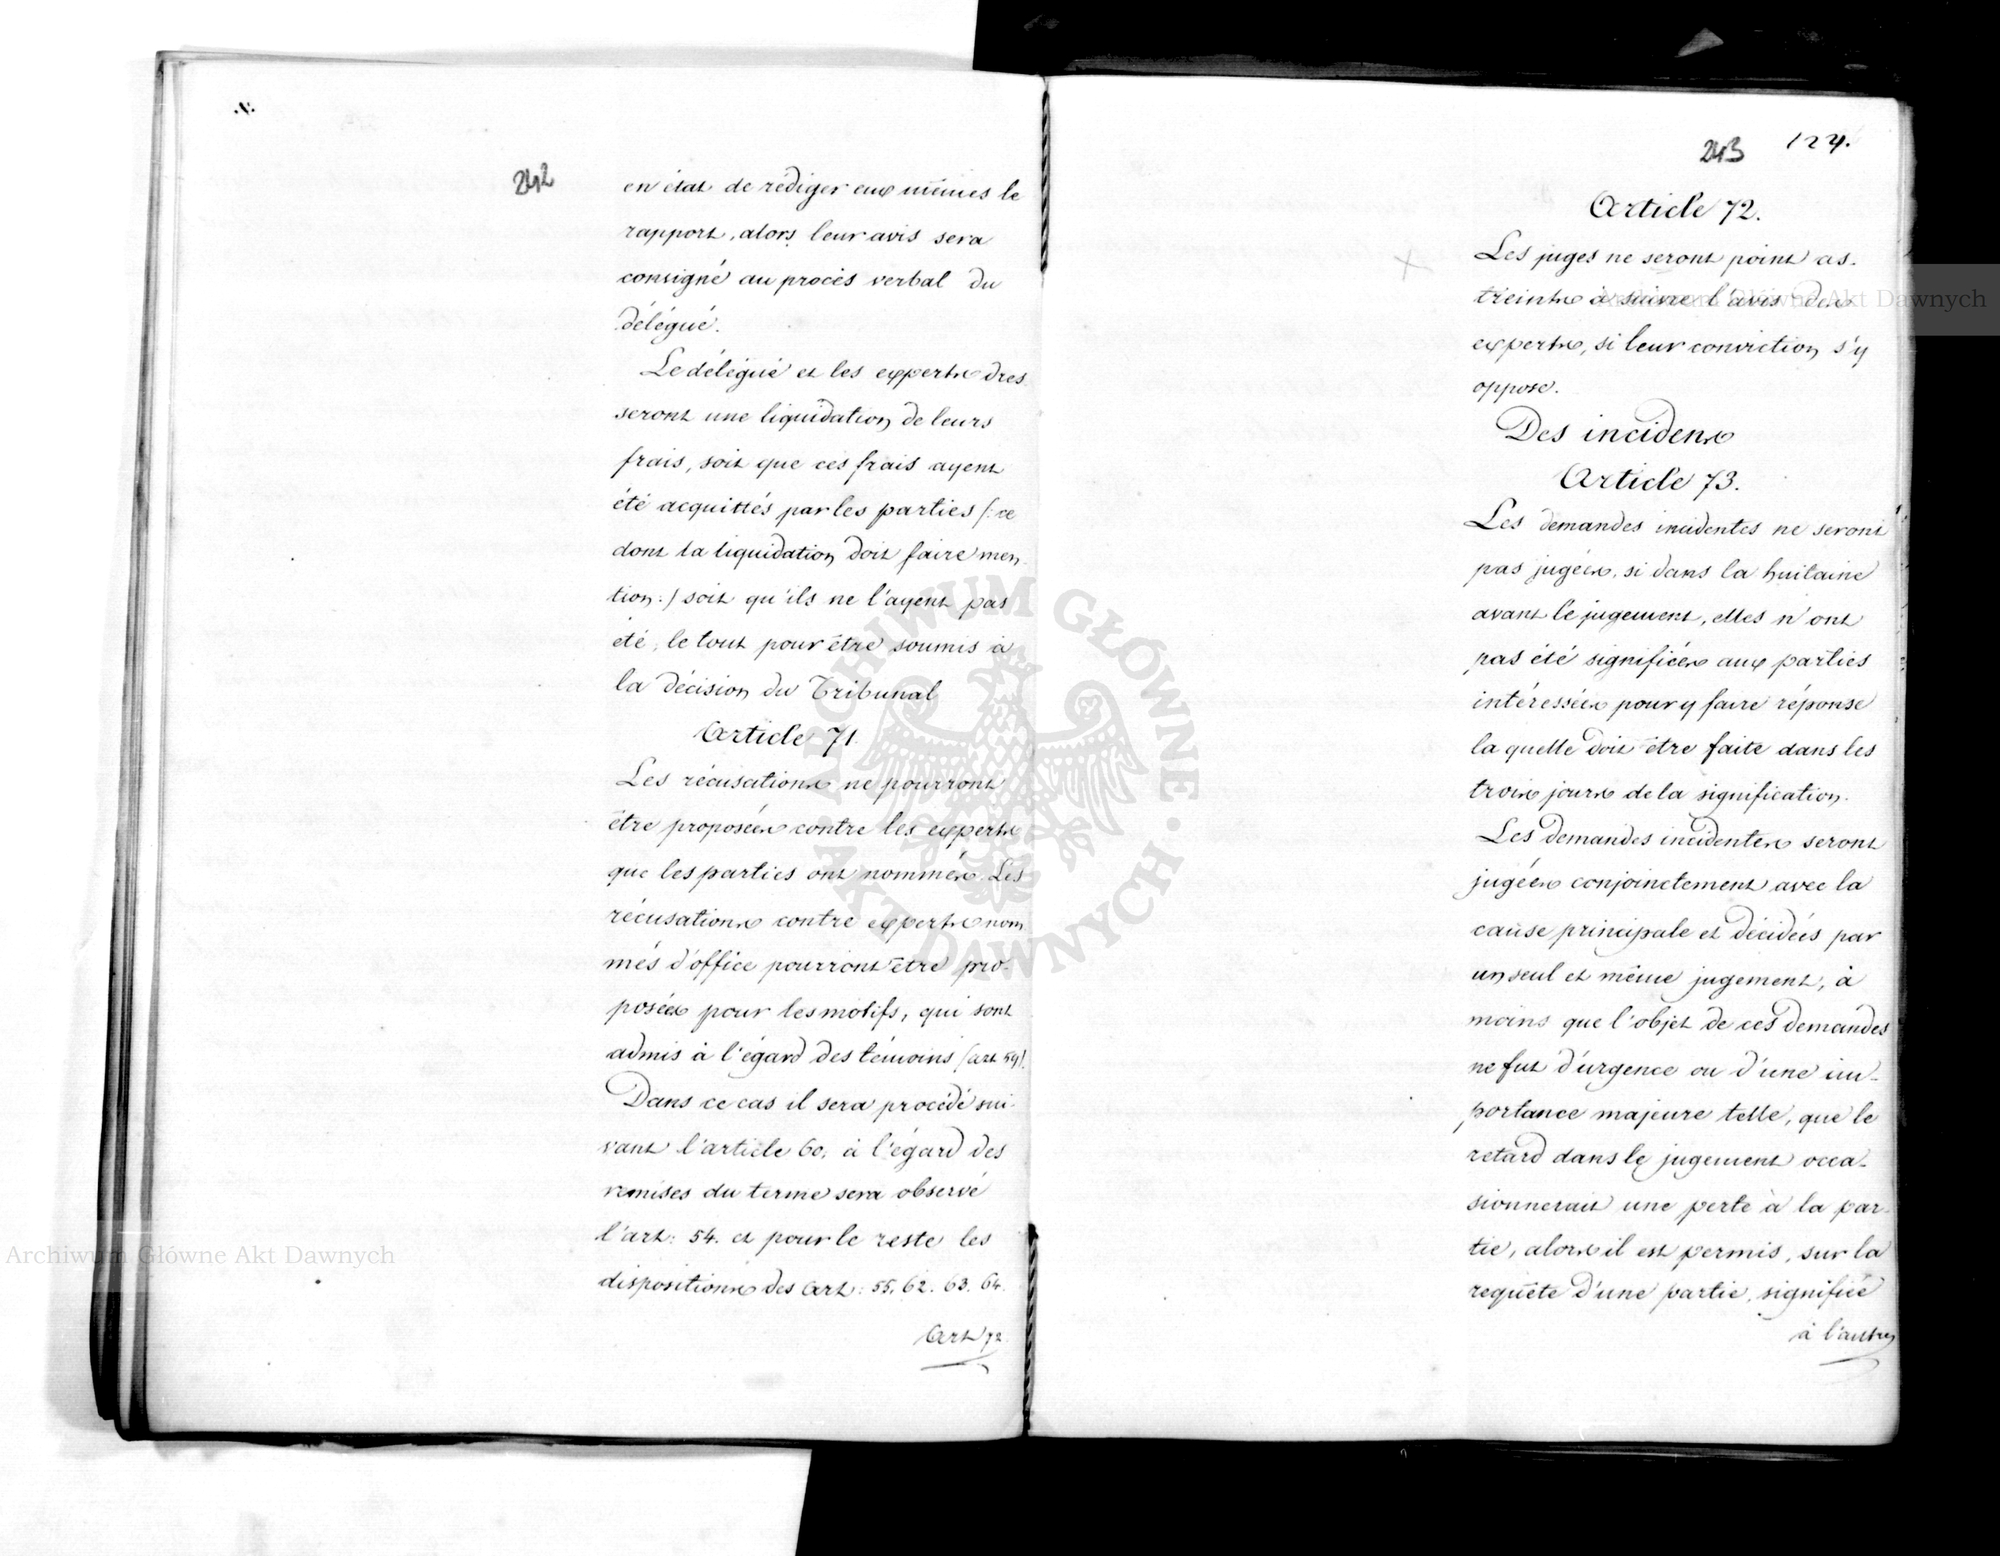 242
en état de rédiger eux mêmes le
rapport, alors leur avis sera
consigné au procès verbal du
délégué.
Le délégué et les experts dres
seront une liquidation de leurs
frais, soit que ces frais ayent
été acquittés par les parties (: ce
dont la liquidation doit faire men
tion :) soit qu'ils ne l'ayent pas
été, le tout pour être soumis à
la décision du Tribunal
Article 71.
Les récusations ne pourront
être proposées contre les experts
que les parties ont nommés. Les
récusations contre experts nom
més d'office pourront être pro-
posées pour les motifs, qui sont
admis à l'égard des témoins (art 59).
Dans ce cas il sera procédé sui-
vant l'article 60, à l'égard des
remises du terme sera observé
l'art: 54. et pour le reste les
dispositions des Art: 55. 62. 63. 64.
Art 72.
243 124.
Article 72.
Les juges ne seront point as-
treints à suivre l'avis des
experts, si leur conviction s'y
oppose.
Des incidens
Article 73.
Les demandes incidentes ne seront
pas jugées, si dans la huitaine
avant le jugement, elles n'ont
pas été signifiées aux parties
intéressées pour y faire réponse
la quelle doit être faite dans les
trois jours de la signification.
Les demandes incidentes seront
jugées conjointement avec la
cause principale et décidées par
un seul et même jugement, à
moins que l'objet de ces demandes
ne fut d'urgence ou d'une im-
portance majeure telle, que le
retard dans le jugement occa-
sionnerait une perte à la par-
tie, alors il est permis, sur la
requête d'une partie, signifiée
à l'autre
Archiwum Główne Akt Dawnych
Archiwum Główne Akt Dawnych
ARCHIWUM GŁÓWNE AKT DAWNYCH